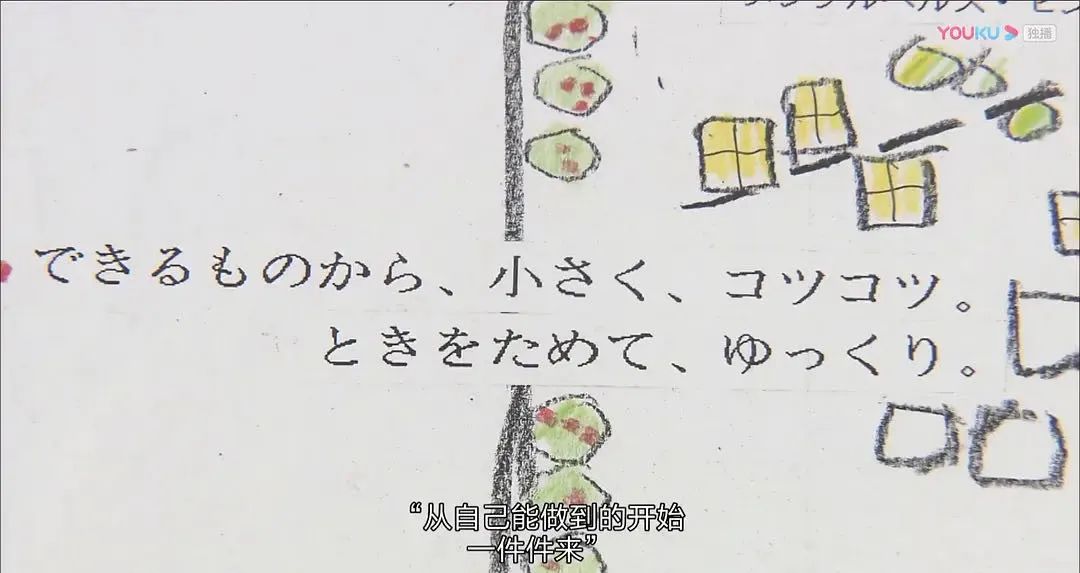 YOUKU 独播
できるものから、小さく、コツコツ。
ときをためて、ゆっくり。
“从自己能做到的开始
一件件来”